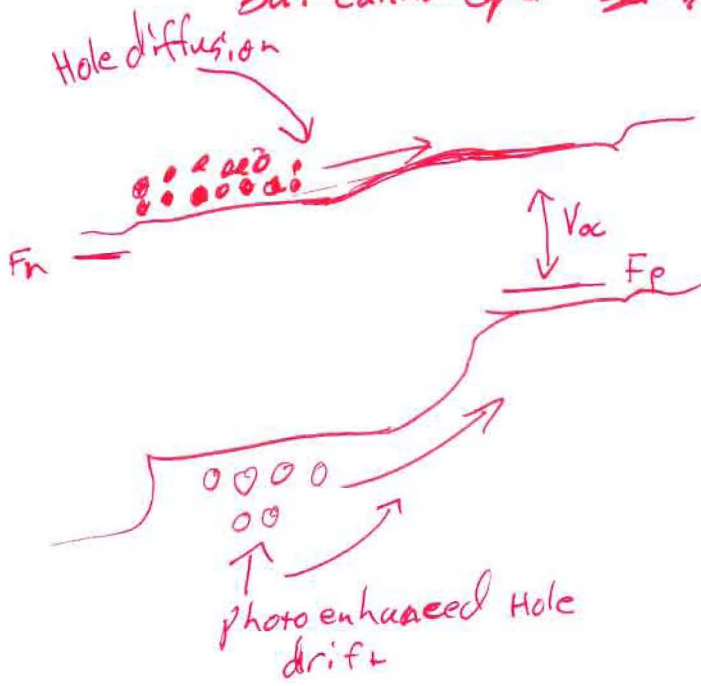 But
Hole diffusion
Voc
Fn
Fp
photo enhanced Hole
drift